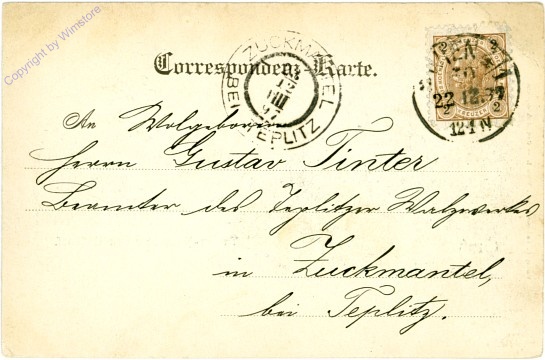 Copyright by Wimstore
Correspondenz-Karte.
ZUCKMANTEL
BEI TEPLITZ
12
97
2 2
WIEN
12.97
12-1N
2 2
An Wolgeboren
Herrn Gustav Tinter
Beamter des Teplitzer Walzwerkes
in Zuckmantel,
bei Teplitz.